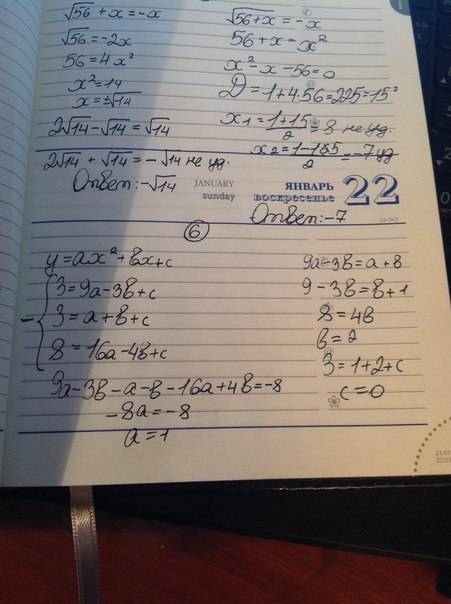 √56 + x = -x
√56 = -2x
56 = 4x²
x² = 14
x = ±√14
2√14 - √14 = √14
2√14 + √14 = -√14 не уд.
Ответ: -√14
√56+x = -x
56 + x = x²
x² - x - 56 = 0
D = 1 + 4·56 = 225 = 15²
x₁ = (1+15)/2 = 8 не уд.
x₂ = /2 = -7 уд
Ответ: -7
JANUARY
sunday
ЯНВАРЬ
воскресенье
22
22-343
⑥
y = ax² + bx + c
3 = 9a - 3b + c
3 = a + b + c
8 = 16a - 4b + c
9a - 3b - a - b - 16a + 4b = -8
-8a = -8
a = 1
9a - 3b = a + b
9 - 3b = b + 1
8 = 4b
b = 2
3 = 1 + 2 + c
c = 0